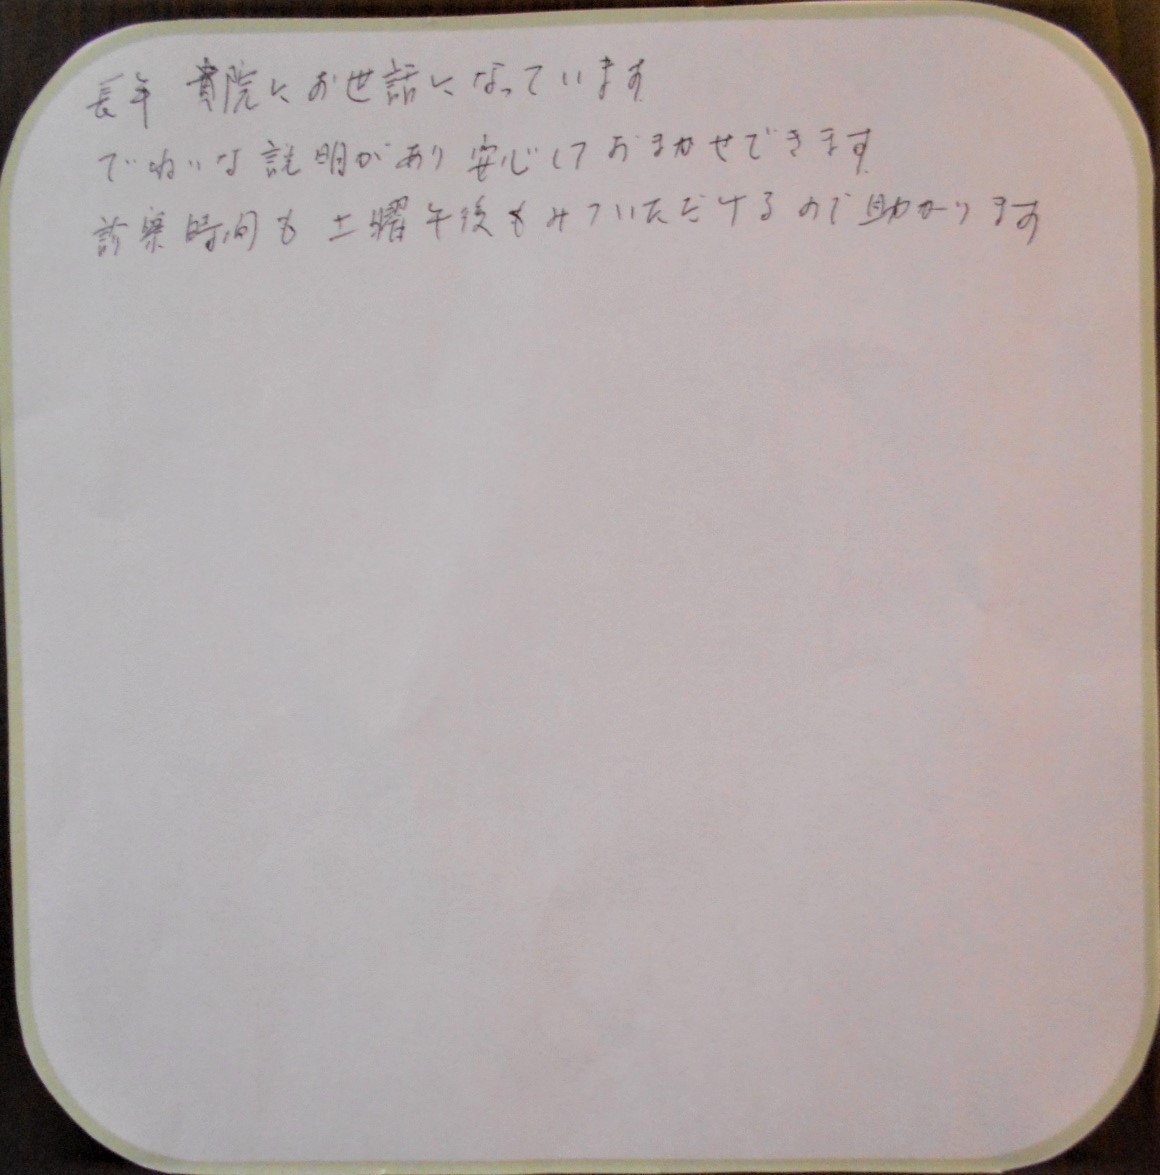 長年 貴院にお世話になっています
でいねいな説明があり 安心しておまかせできます
診察時間も 土曜午後もみていただけるので助かります